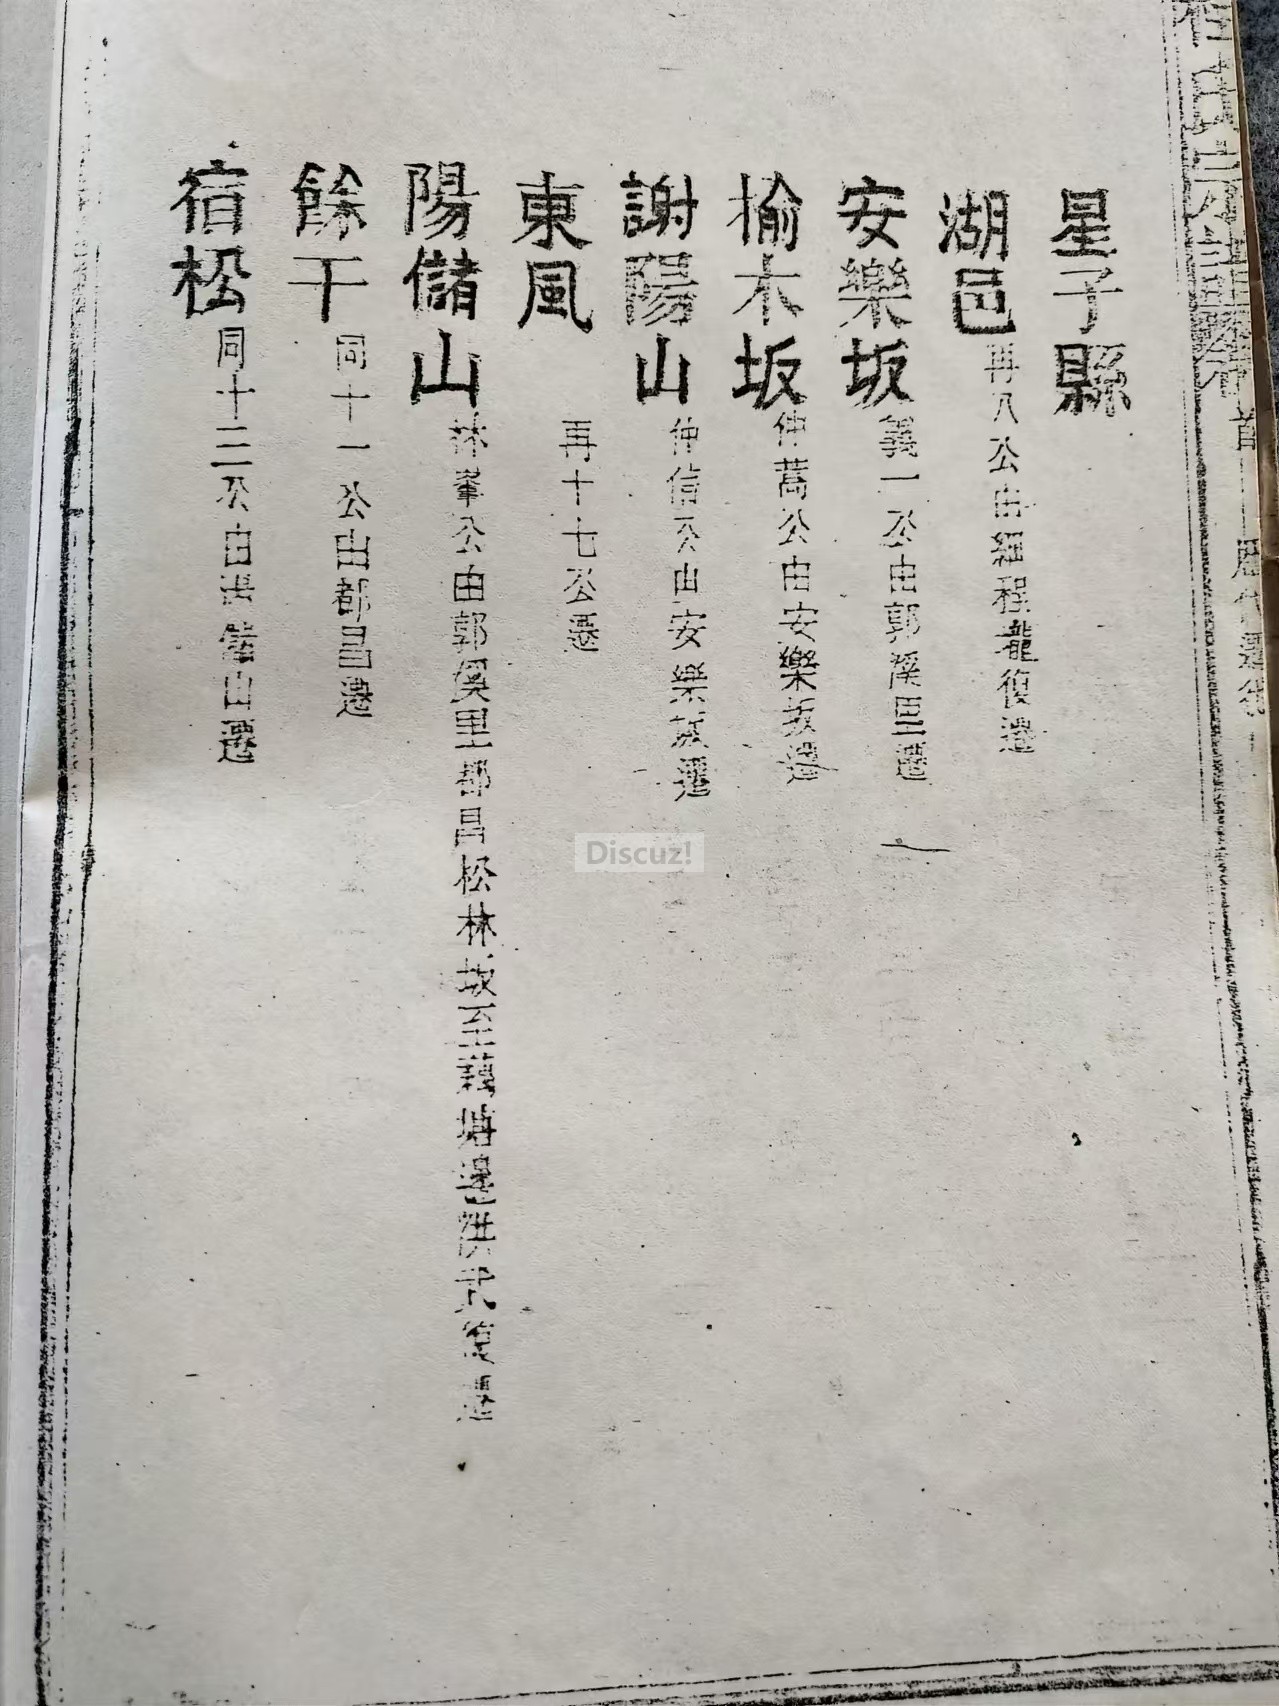 首 歷代遷徙
星子縣
湖邑 再八公由程龍復遷
安樂坂 義一公由郭溪里遷
榆木坂 仲蒿公由安樂坂遷
謝陽山 仲信公由安樂坂遷
東風 再十七公遷
陽儲山 林峯公由郭溪里都昌松林坂至藕塘洪復遷
餘干 同十一公由都昌遷
宿松 同十二公由儲山遷
Discuz!